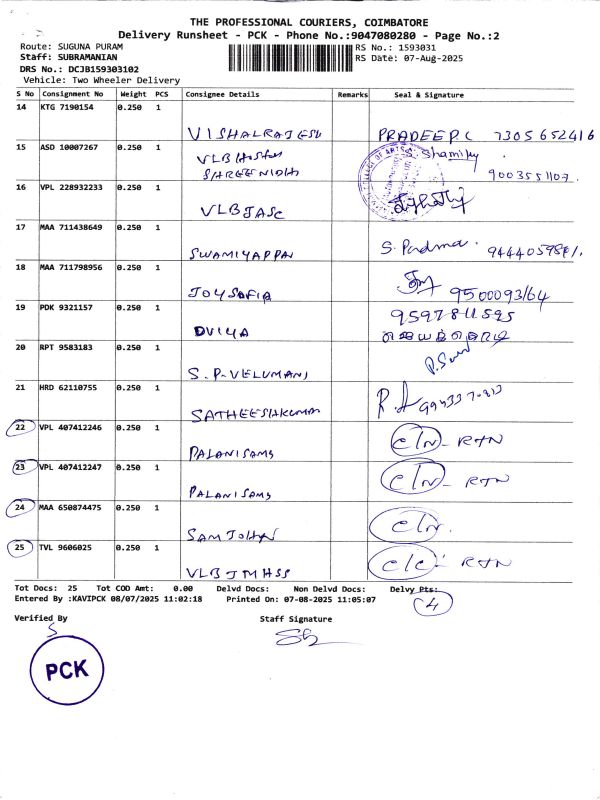 THE PROFESSIONAL COURIERS, COIMBATORE
Delivery Runsheet - PCK - Phone No.:9047080280 - Page No.:2
Route: SUGUNA PURAM
RS No.: 1593031
Staff: SUBRAMANIAN
RS Date: 07-Aug-2025
DRS No.: DCJB159303102
Vehicle: Two Wheeler Delivery
S No Consignment No Weight PCS Consignee Details Remarks Seal & Signature
14 KTG 7190154 0.250 1
VISHALRAJESH PRADEEP.C 7305652416
15 ASD 10007267 0.250 1
VLB Hostel
SHREENIDHI 9003551107
16 VPL 228932233 0.250 1
VLBJASC
17 MAA 711438649 0.250 1
SWAMIYAPPAN S. Padma
18 MAA 711798956 0.250 1
JOYSOFIA 9500093164
19 PDK 9321157 0.250 1 9597811595
DVIYA
20 RPT 9583183 0.250 1
S.P.VELUMANI
21 HRD 62110755 0.250 1
SATHEESHKUMAR
22 VPL 407412246 0.250 1
PALANISAMY RTN
23 VPL 407412247 0.250 1
PALANISAMY RTN
24 MAA 650874475 0.250 1
SAMJOHN
25 TVL 9606025 0.250 1
VLBJMHSS RTN
Tot Docs: 25 Tot COD Amt: 0.00 Delvd Docs: Non Delvd Docs: Delvy Pts:
4
Entered By :KAVIPCK 08/07/2025 11:02:18 Printed On: 07-08-2025 11:05:07
Verified By Staff Signature
PCK